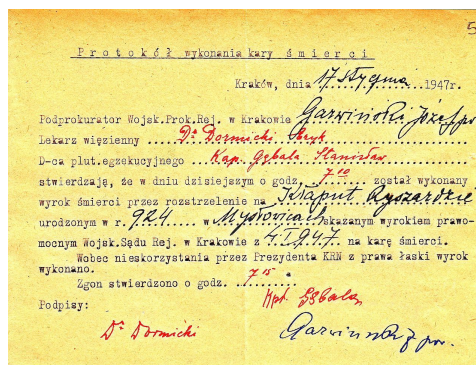 5
Protokół wykonania kary śmierci
Kraków, dnia 17 stycznia 1947r.
Podprokurator Wojsk.Prok.Rej. w Krakowie Garwiński Józef por
Lekarz więzienny Dr Dormicki
D-ca plut.egzekucyjnego Kap. Gębala Stanisław
stwierdzają, że w dniu dzisiejszym o godz. 7 10 został wykonany
wyrok śmierci przez rozstrzelenie na Kłaput Ryszardzie
urodzonym w r. 924 w Mysłowicach skazanym wyrokiem prawo-
mocnym Wojsk.Sądu Rej. w Krakowie z 4.I.947. na karę śmierci.
Wobec nieskorzystania przez Prezydenta KRN z prawa łaski wyrok
wykonano.
Zgon stwierdzono o godz. 7 15
Podpisy: Kpt. Gębala
Dr Dormicki Garwiński por.